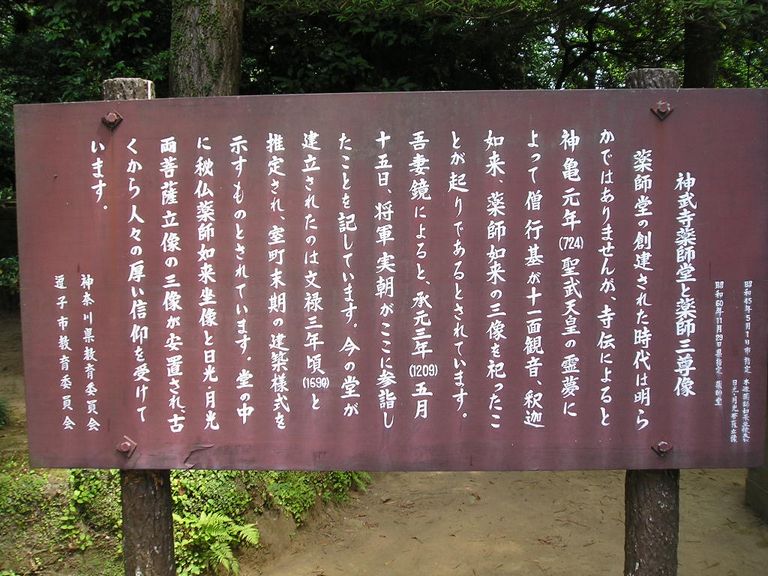 昭和45年5月1日市指定 本尊薬師如来坐像及
日光・月光菩薩立像
昭和60年11月29日県指定 薬師堂
神武寺薬師堂と薬師三尊像
薬師堂の創建された時代は明ら
かではありませんが、寺伝によると
神亀元年(724)聖武天皇の霊夢に
よって僧行基が十一面観音、釈迦
如来、薬師如来の三像を祀ったこ
とが起りであるとされています。
吾妻鏡によると、承元三年(1209)五月
十五日、将軍実朝がここに参詣し
たことを記しています。今の堂が
建立されたのは文禄三年頃(1594)と
推定され、室町末期の建築様式を
示すものとされています。堂の中
に秘仏薬師如来坐像と日光・月光
両菩薩立像の三像が安置され、古
くから人々の厚い信仰を受けて
います。
神奈川県教育委員会
逗子市教育委員会